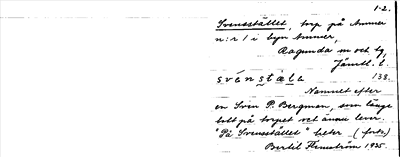 1-2.
Svensstället, torp på Ammer
n:r 1 i byn Ammer,
Ragunda sn och tg,
Jämtl. l.
svenstale 138.
Namnet efter
en Sven P. Bergman, som länge
bott på torpet och ännu lever.
"På Svensstället" heter (forts)
Bertil Flemström 1935